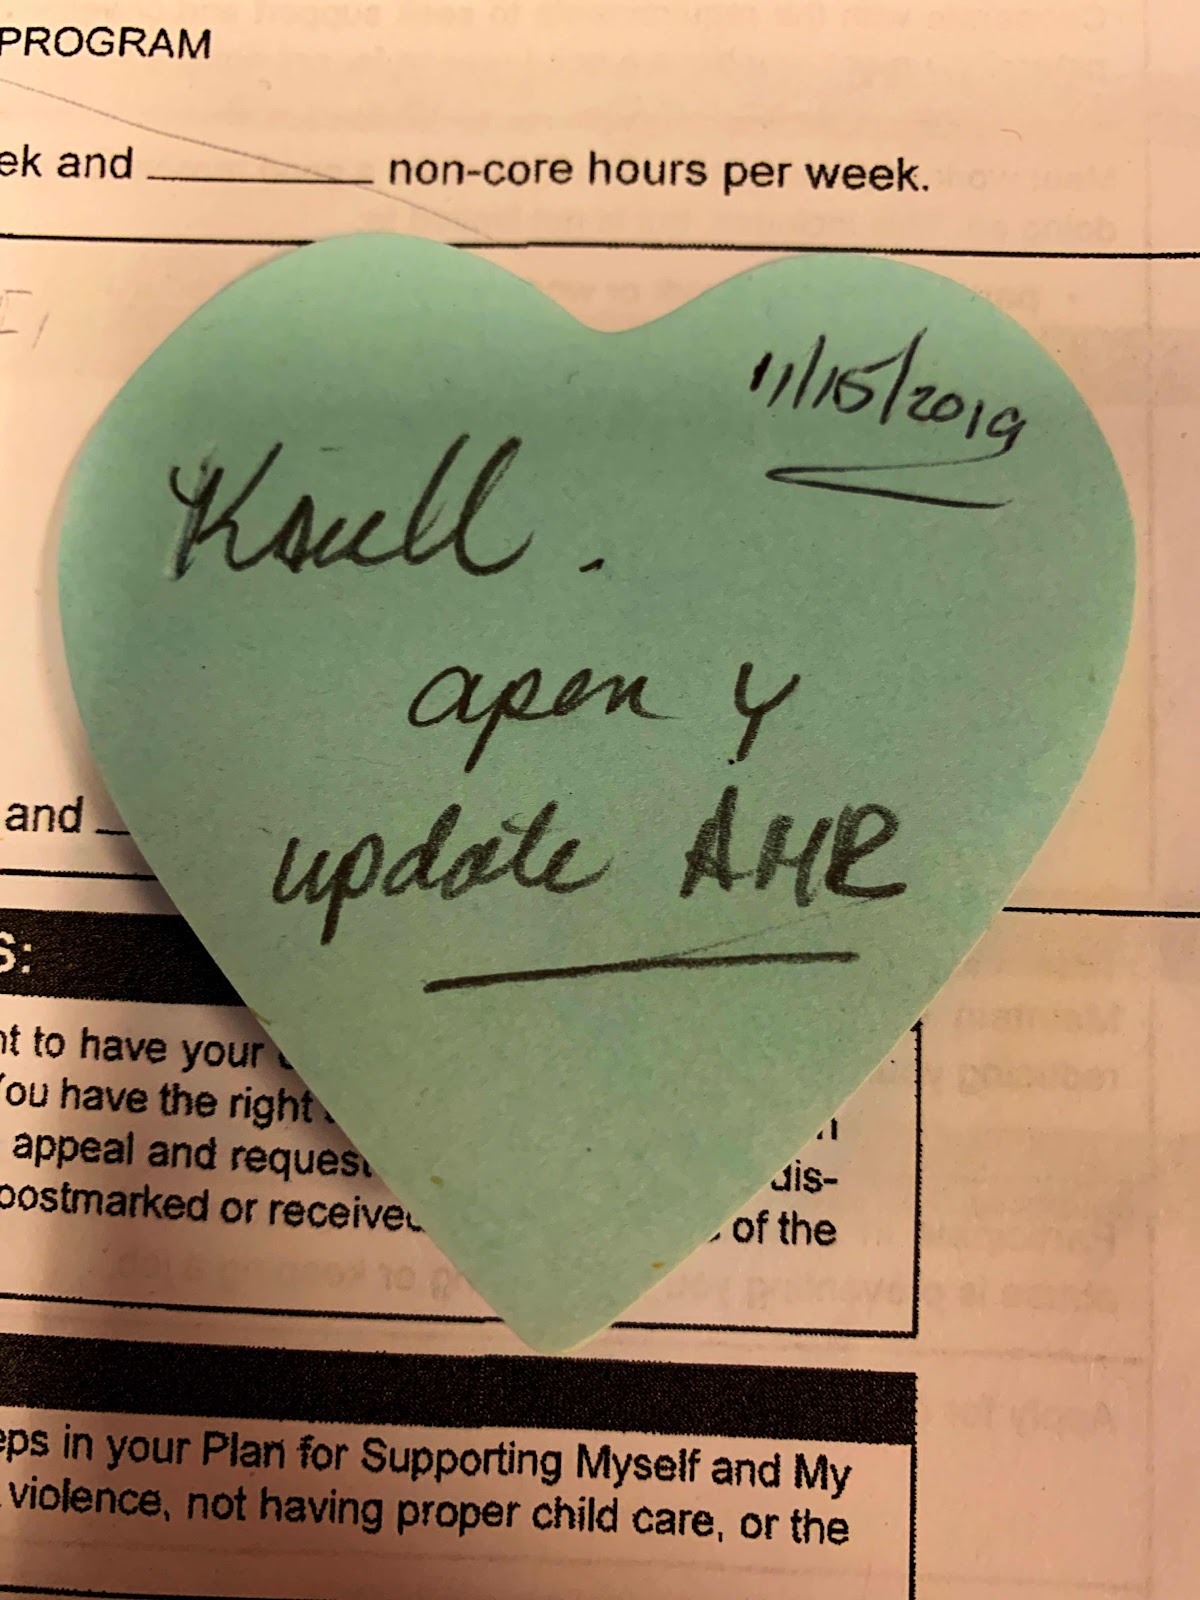 PROGRAM
ek and ________ non-core hours per week.
11/15/2019
open &
update AMR
and
S:
nt to have your
You have the right
appeal and request
dis-
postmarked or received
of the
eps in your Plan for Supporting Myself and My
violence, not having proper child care, or the